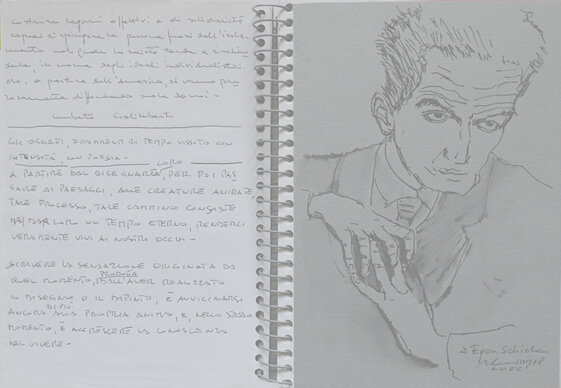 costruire legami affettivi e di solidarietà
capaci di spingere le persone fuori dall'isola-
mento nel quale la società tende a rinchiu-
derle, in nome degli ideali individualistici
che, a partire dall'America, si vanno pau-
rosamente diffondendo anche da noi -
Umberto Galimberti
GLI OGGETTI, FRAMMENTI DI TEMPO VISSUTO CON
INTENSITÀ, CON POESIA -
LORO
A PARTIRE DAL DISEGNARLI, PER POI PAS
SARE AI PAESAGGI, ALLE CREATURE ANIMATE,
TALE PROCESSO, TALE CAMMINO CONSISTE
LOR UN TEMPO ETERNO, RENDERLI
VERAMENTE VIVI AI NOSTRI OCCHI -
SCRIVERE LA SENSAZIONE ORIGINATA DA
PROPRIA
QUEL MOMENTO, DALL'AVER REALIZZATO
IL DISEGNO O IL DIPINTO, È AVVICINARSI
DI PIÙ
ANCORA ALLA PROPRIA ANIMA, E, NELLO STESSO
MOMENTO, È ACCRESCERE LA CONOSCENZA
DEL VIVERE -
A Egon Schiele